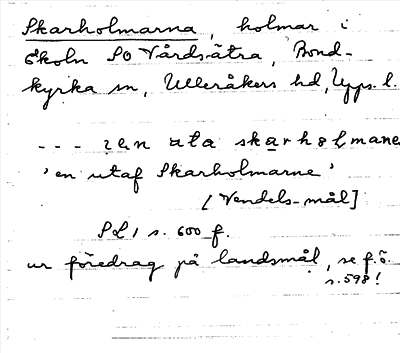 Skarholmarna, holmar i
Ekoln SO Vårdsätra, Bond-
kyrka sn, Ulleråkers hd, Upps. l.
--- en uta skarholmane
'en utaf Skarholmarne'
[Vendels-mål]
SL 1 s. 600 f.
ur föredrag på landsmål, se f. ö.
s. 598!